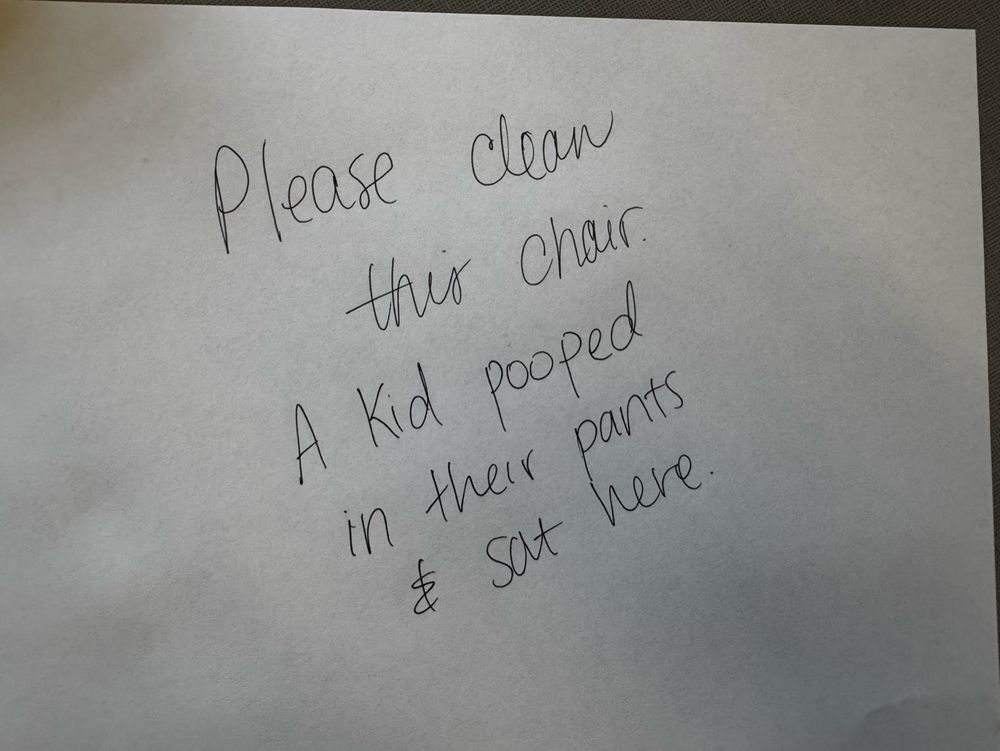 Please clean
this chair.
A Kid pooped
in their pants
& sat here.